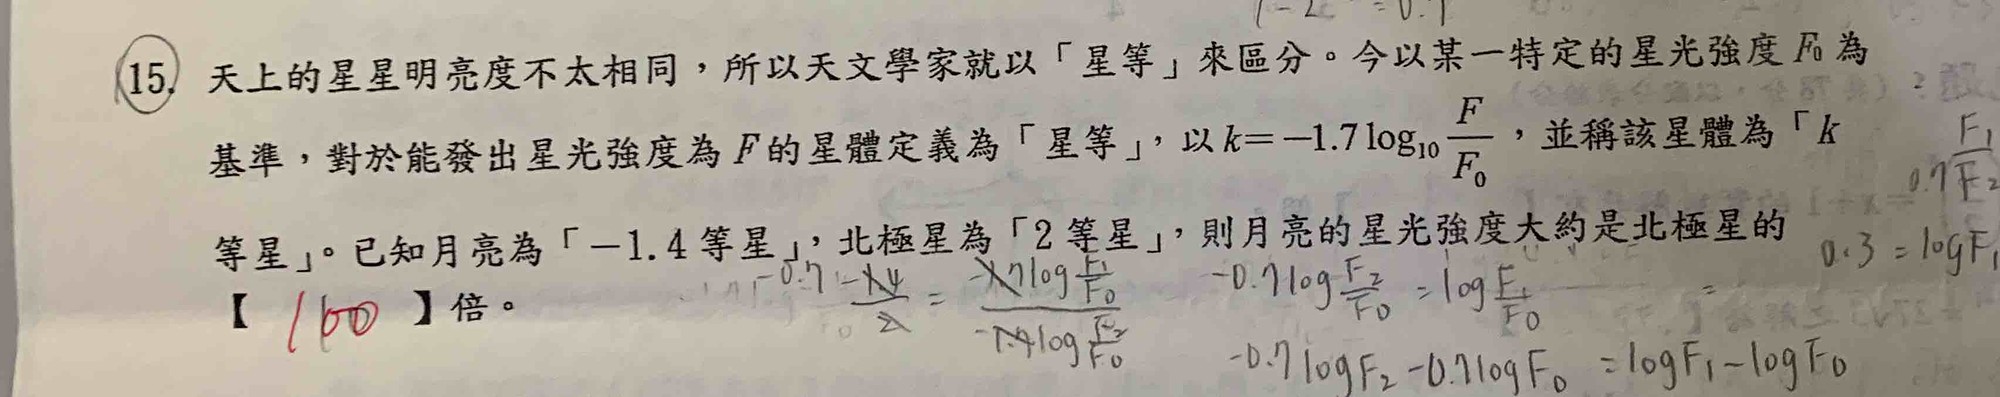 1-2 = 0.7
15. 天上的星星明亮度不太相同，所以天文學家就以「星等」來區分。今以某一特定的星光強度 F₀ 為
基準，對於能發出星光強度為 F 的星體定義為「星等」，以 k=－1.7 log₁₀ F/F₀，並稱該星體為「k
等星」。已知月亮為「－1.4 等星」，北極星為「2 等星」，則月亮的星光強度大約是北極星的
【 100 】倍。
-0.7 -1.4/2 = -1.7log F₁/F₀ / -1.7log F₂/F₀
-0.7log F₂/F₀ = log F₁/F₀
-0.7logF₂-0.7logF₀ = logF₁-logF₀
0.7 F₁/F₂
0.3 = logF₁